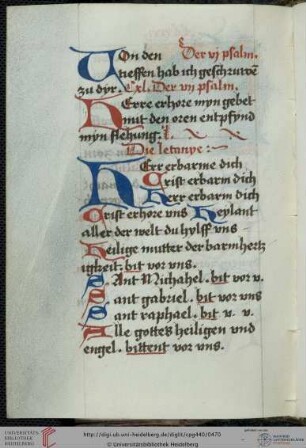 Von den Der vj psalm.
tieffen hab ich geschruwē
zu dyr. Cxl. Der vij psalm.
Herre erhore myn gebet
mit den oren entpfynd
myn flehung:
Die letanye:
Herr erbarme dich
Crist erbarm dich
Herr erbarm dich
Crist erhore vns Heylant
aller der welt du hylff vns
Heilige mutter der barmhertz
igkeit: bit vor vns.
Sant Michahel. bit vor v.
Sant gabriel. bit vor vns
Sant raphael. bit v. v.
Alle gottes heiligen vnd
engel. bittent vor vns.
UNIVERSITÄTS-
BIBLIOTHEK
HEIDELBERG
http://digi.ub.uni-heidelberg.de/diglit/cpg440/0470
© Universitätsbibliothek Heidelberg